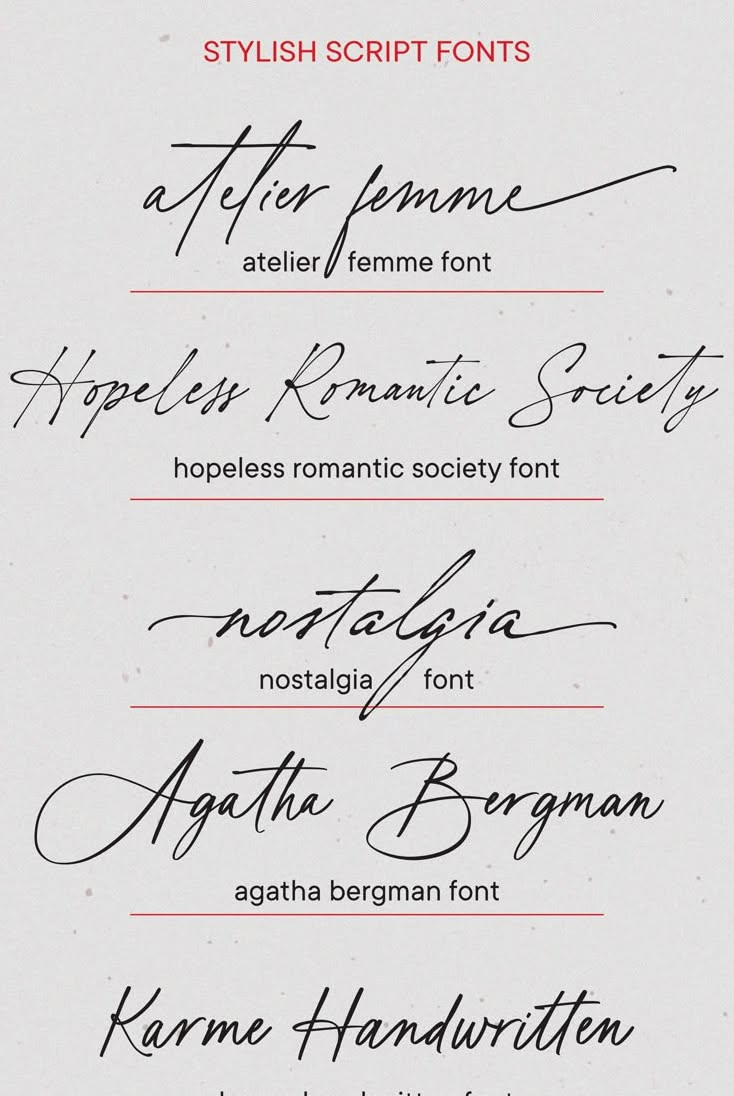 STYLISH SCRIPT FONTS
atelier femme
atelier femme font
Hopeless Romantic Society
hopeless romantic society font
nostalgia
nostalgia font
Agatha Bergman
agatha bergman font
Karme Handwritten